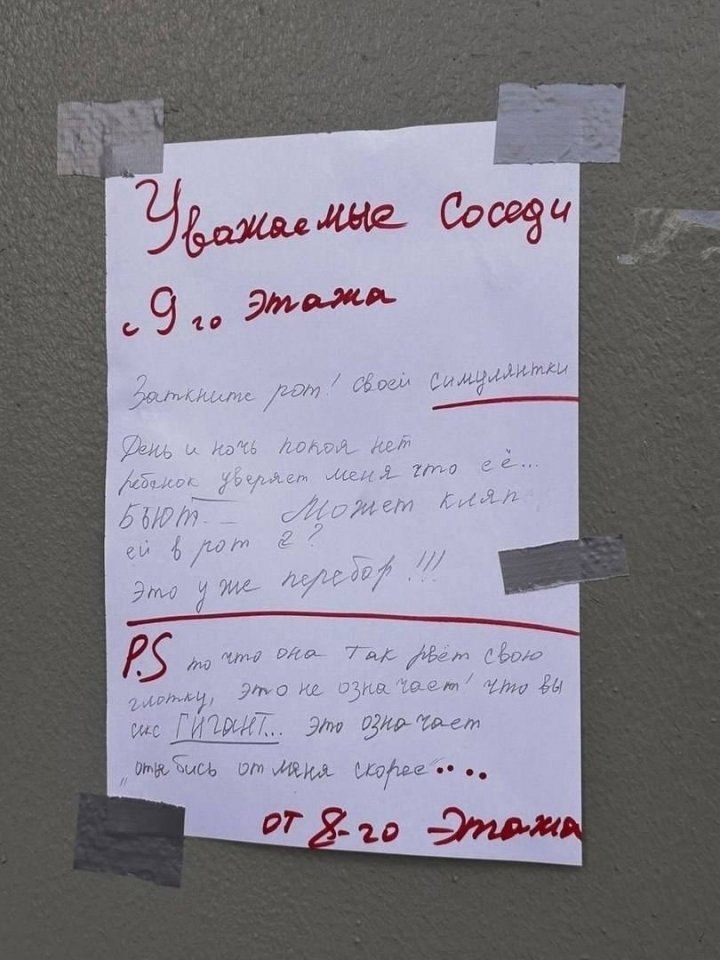 Уважаемые Соседи
с 9го Этажа
Заткните рот! своей симулянтки
День и ночь покоя нет
ребёнок уверяет меня что её...
БЬЮТ... Может кляп
ей в рот ?
Это уже перебор!!!
P.S то что она так рвёт свою
глотку, это не означает что вы
секс ГИГАНТ... Это означает
"отъебись от меня скорее"....
от 8-го Этажа